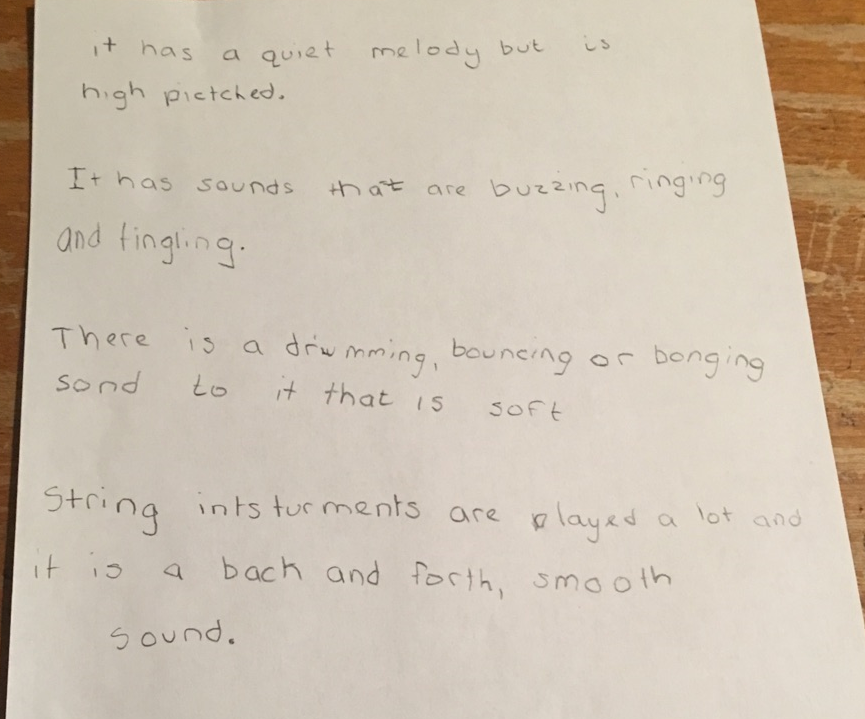 it has a quiet melody but is
high pictched.
It has sounds that are buzzing, ringing
and tingling.
There is a drumming, bouncing or bonging
sond to it that is soft
String intsturments are played a lot and
it is a back and forth, smooth
sound.